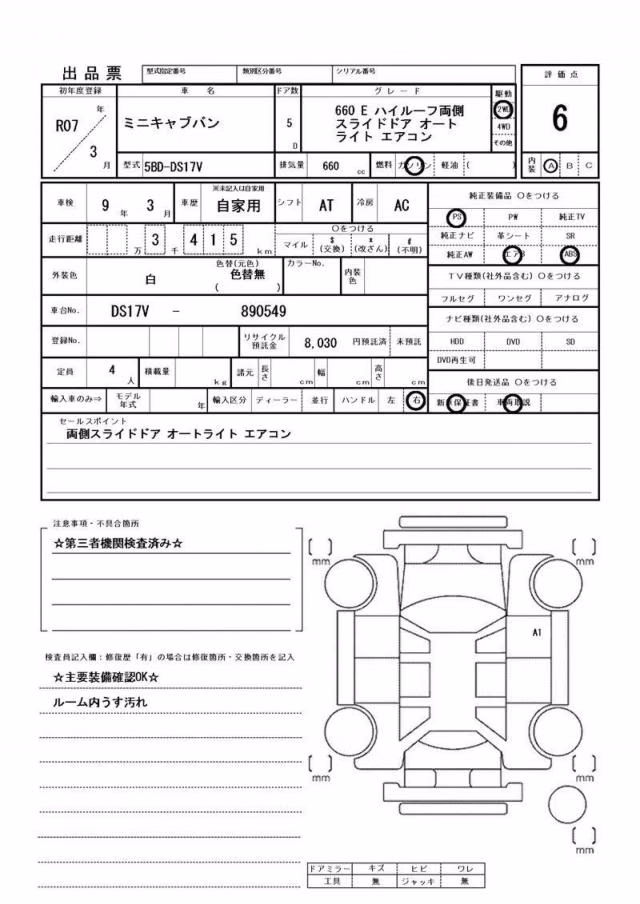 出品票 型式指定番号 類別区分番号 シリアル番号
評価点
6
内装 A B C
初年度登録 車名 ドア数 グレード 駆動
R07 年 3 月
ミニキャブバン
5 D
660 E ハイルーフ両側
スライドドア オート
ライト エアコン
2WD
4WD
その他
型式 5BD-DS17V 排気量 660 cc 燃料 ガソリン 軽油 ( )
車検 9 年 3 月 車歴 ※未記入は自家用 自家用 シフト AT 冷房 AC
走行距離 万 3 千 4 1 5 km
○をつける
マイル $(交換) x(改ざん) #(不明)
外装色 白 色替(元色) 色替無 ( ) カラーNo. 内装色
車台No. DS17V - 890549
登録No. リサイクル預託金 8,030 円預託済 未預託
定員 4 人 積載量 kg 諸元 長さ cm 幅 cm 高さ cm
輸入車のみ⇒ モデル年式 年 輸入区分 ディーラー 並行 ハンドル 左 右
純正装備品 ○をつける
PS PW 純正TV
純正ナビ 革シート SR
純正AW エアB ABS
TV種類(社外品含む) ○をつける
フルセグ ワンセグ アナログ
ナビ種類(社外品含む) ○をつける
HDD DVD SD
DVD再生可
後日発送品 ○をつける
新車保証書 車両取説
セールスポイント
両側スライドドア オートライト エアコン
注意事項・不具合箇所
☆第三者機関検査済み☆
検査員記入欄:修復歴「有」の場合は修復箇所・交換箇所を記入
☆主要装備確認OK☆
ルーム内うす汚れ
[ ] mm
[ ] mm
A1
[ ] mm
[ ] mm
[ ] mm
ドアミラー キズ ヒビ ワレ
工具 無 ジャッキ 無